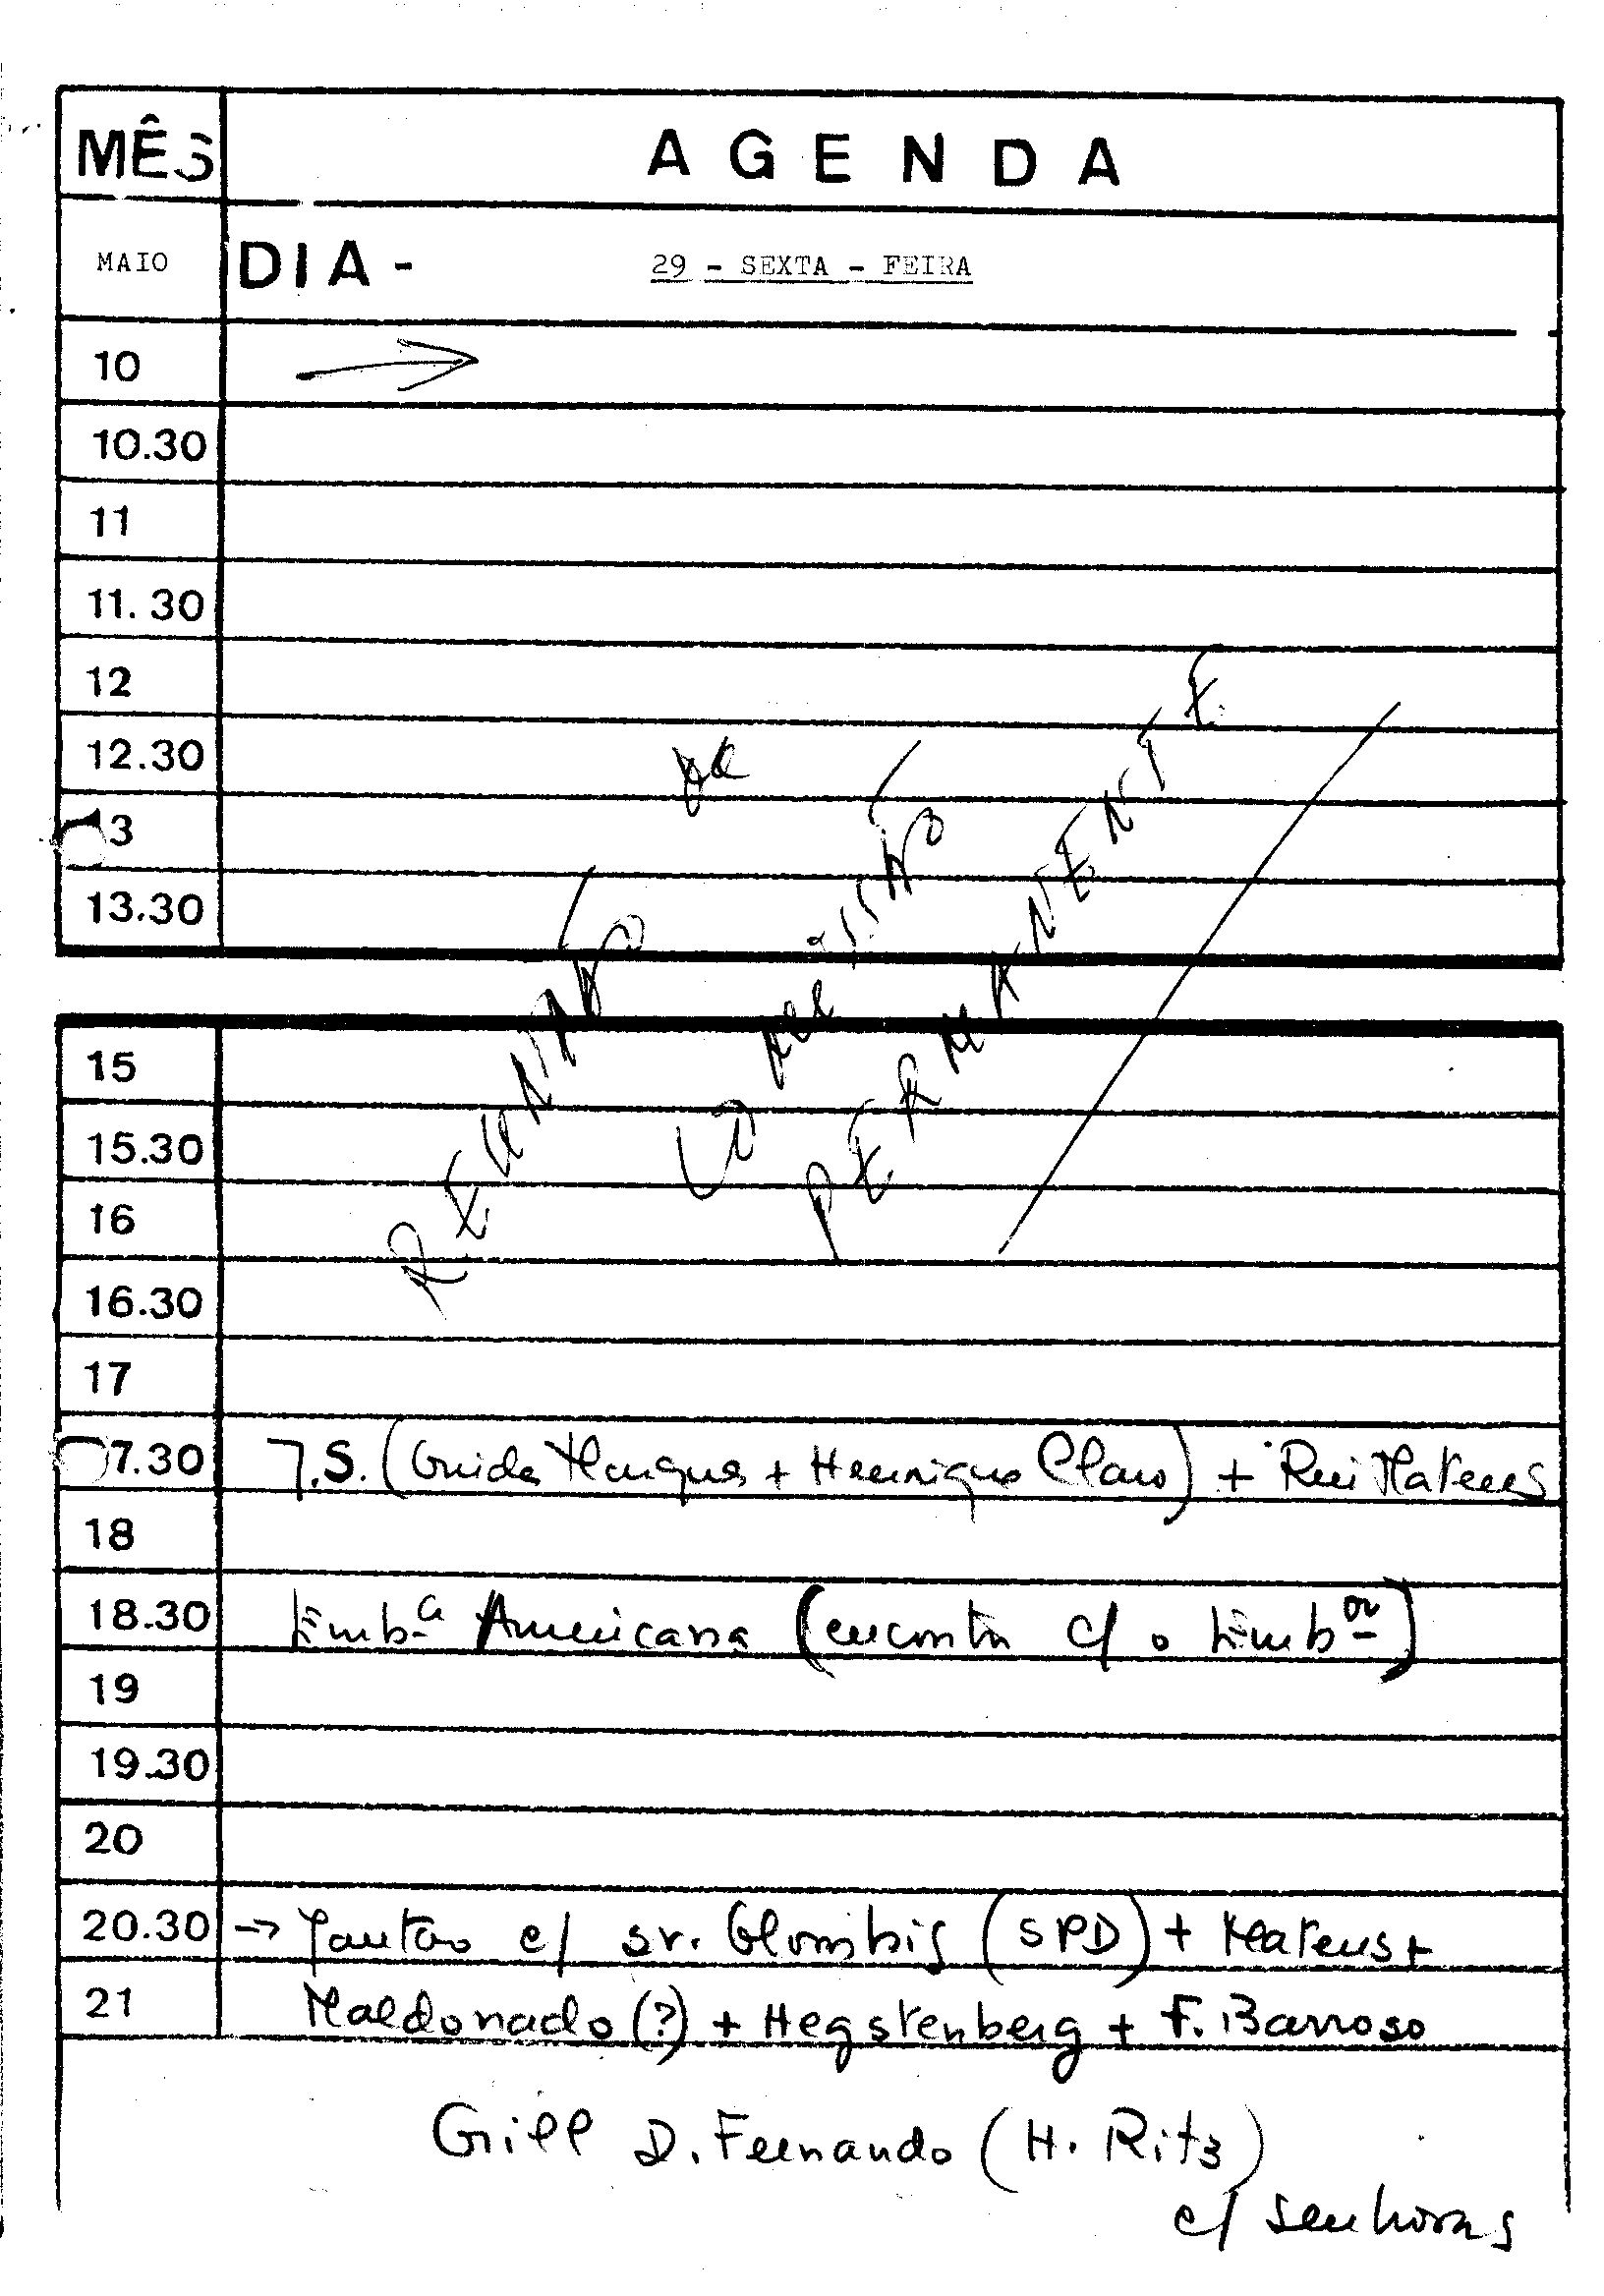 MÊS AGENDA
MAIO DIA - 29 - SEXTA - FEIRA
10 →
10.30
11
11.30
12
12.30
13
13.30
REUNIÃO
da
COMISSÃO
PERMANENTE
15
15.30
16
16.30
17
17.30 J.S. (Guida Marques + Henrique Claro) + Rui Mateus
18
18.30 Emb.a Americana (encontro c/ o Emb.or)
19
19.30
20
20.30 → Jantar c/ sr. (SPD) + Mateus +
21 Maldonado (?) + Hegstenberg + F. Barroso
Grill D. Fernando (H. Ritz)
c/ senhoras